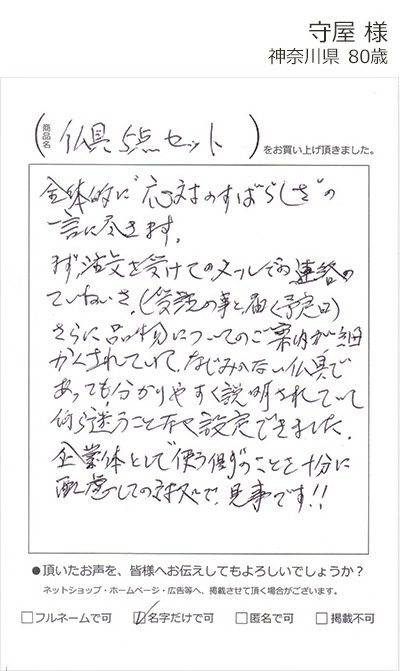 守屋 様
神奈川県 80歳
商品名 ( 仏具5点セット ) をお買い上げ頂きました。
全体的に"応対のすばらしさ"の
一言に尽きます。
まず、注文を受けてのメールでの連絡の
ていねいさ、(受諾の事と届く予定日)
さらに品物についてのご案内が細
かくされていて、なじみのない仏具で
あっても分かりやすく説明されていて
何ら迷うことなく設定できました。
企業体として使う側のことを十分に
配慮しての対処で、見事です!!
●頂いたお声を、皆様へお伝えしてもよろしいでしょうか？
ネットショップ・ホームページ・広告等へ、掲載させて頂く場合がございます。
□フルネームで可 ☑名字だけで可 □匿名で可 □掲載不可